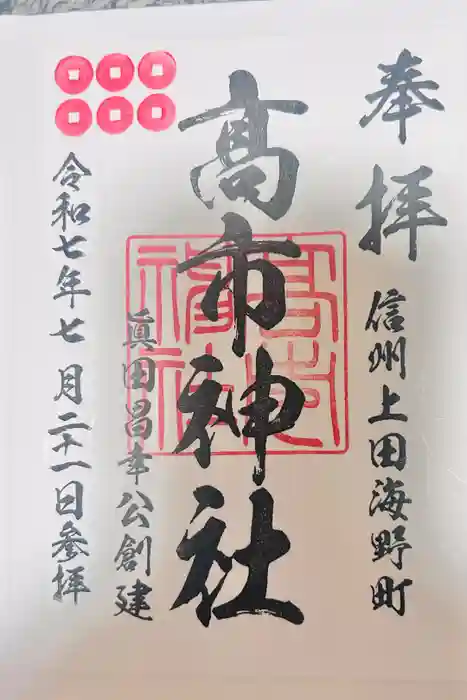 奉拝
信州上田海野町
高市神社
眞田昌幸公創建
令和七年七月二十一日参拝